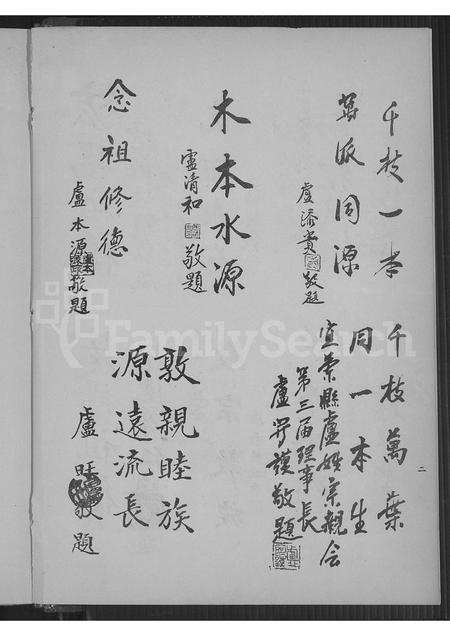 千枝一本
萬派同源
盧添貴敬題
木本水源
盧清和敬題
念祖修德
盧本源敬題
千枝萬葉
同一本生
宜蘭縣盧姓宗親会
第三届理事長
盧 謨敬題
敦親睦族
源遠流長
盧旺 敬題
二
FamilySearch